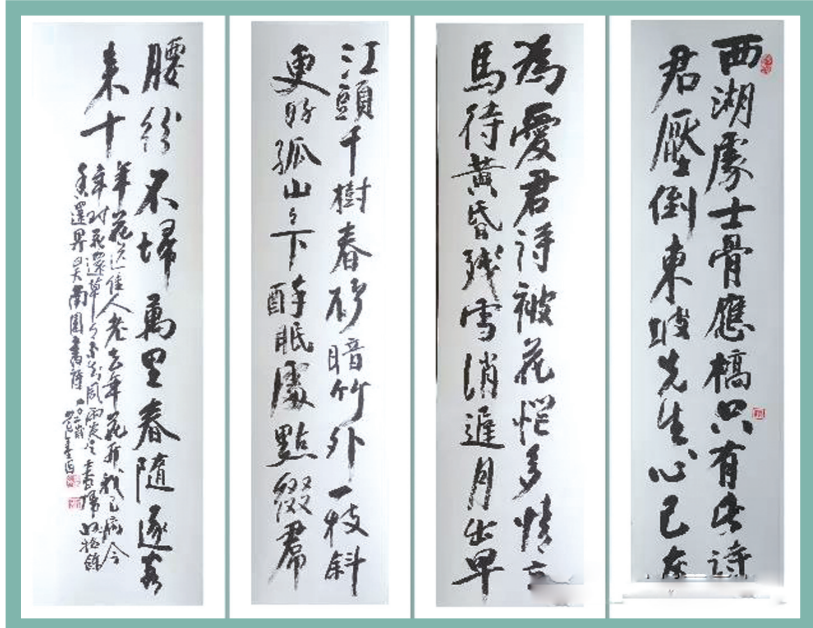 西湖處士骨應槁只有此詩
君壓倒東坡先生心已
為愛君詩被花惱多情
馬待黃昏残雪消遲月出早
江頭千樹春欲暗竹外一枝斜
更好孤山々下醉眠處點綴帬
腰紛不埽萬里春隨逐客
来十
年花送佳人老去年花開我已病今
年對花還草々不知風雨卷春歸收拾餘
香還畀昊